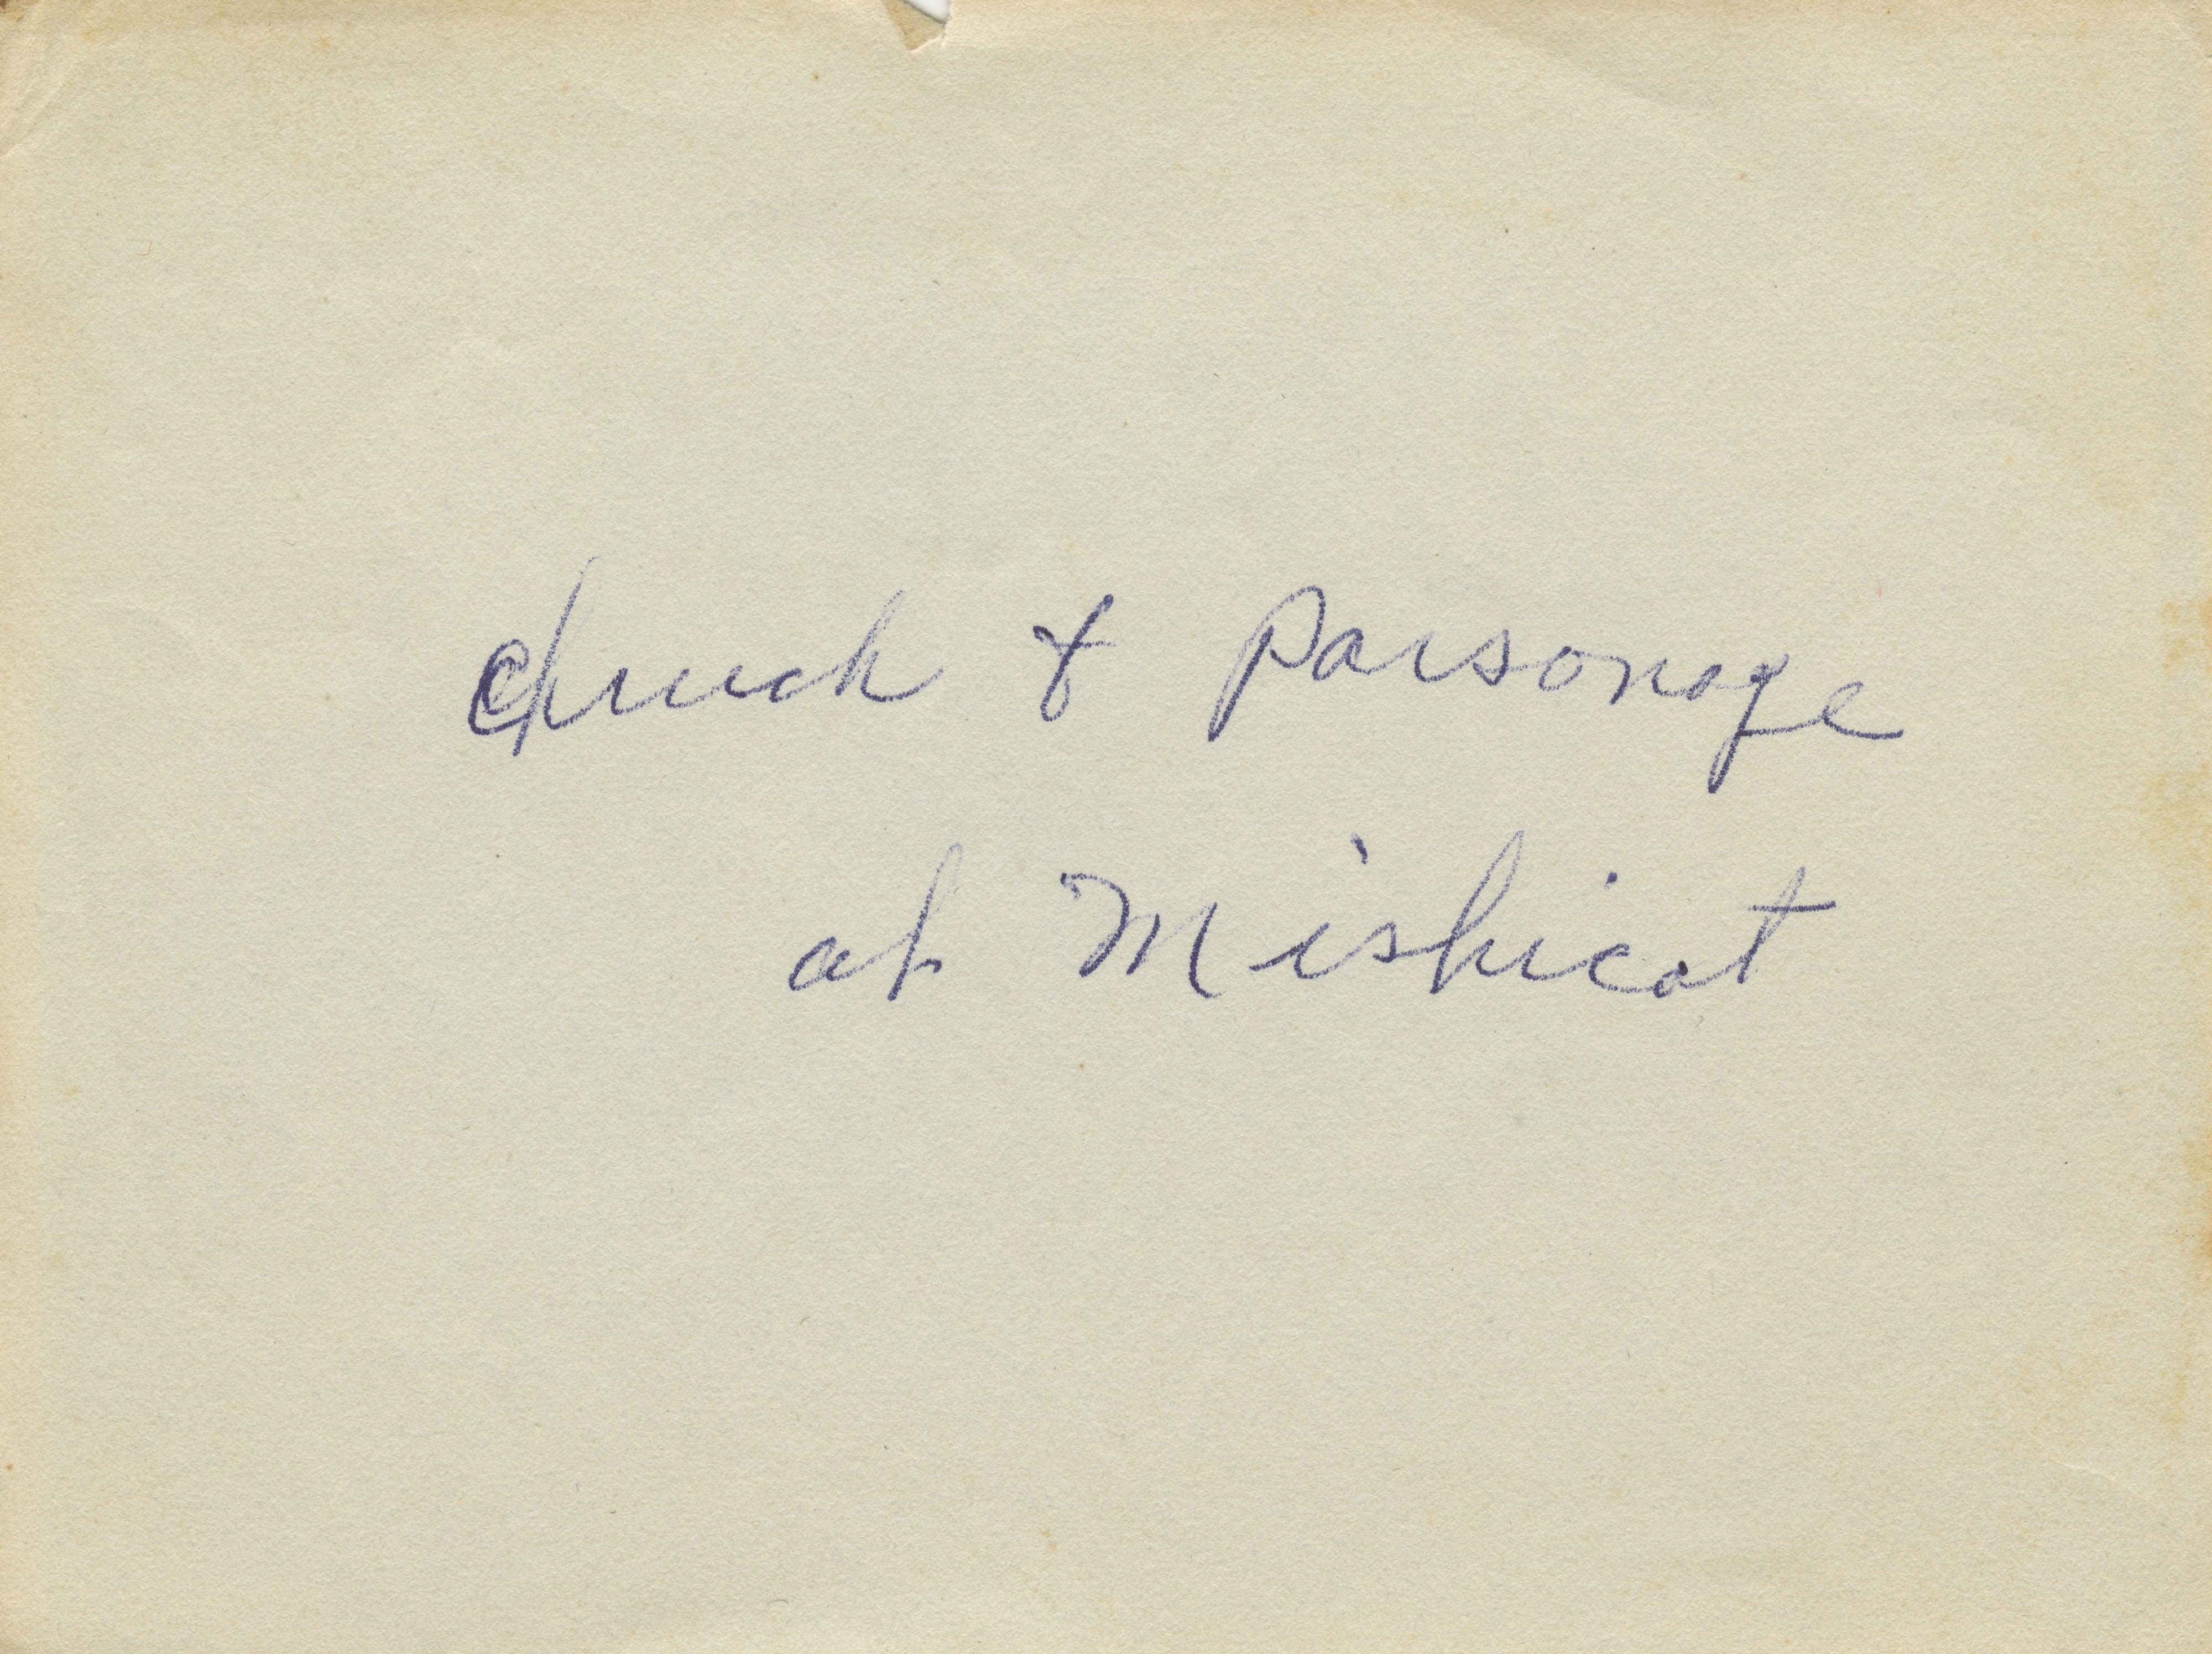 Church & Parsonage
at Mishicot